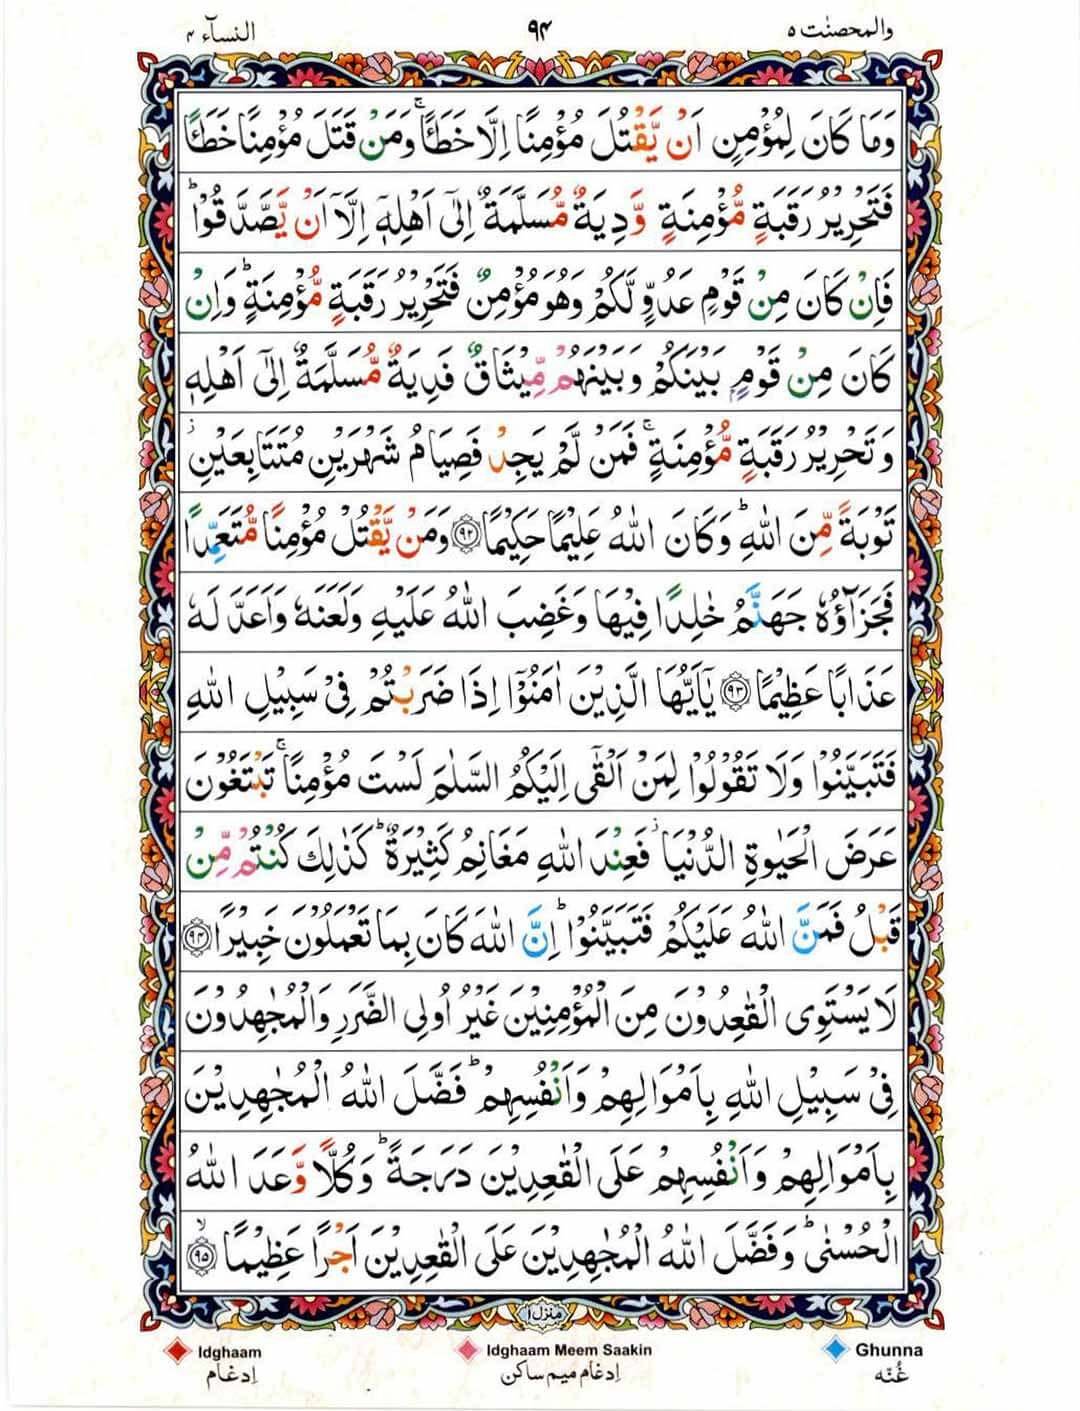 النسآء ۴ ۹۴ والمحصنٰت ۵
وَمَا كَانَ لِمُؤْمِنٍ اَنْ يَّقْتُلَ مُؤْمِنًا اِلَّا خَطَـًٔا ۚ وَمَنْ قَتَلَ مُؤْمِنًا خَطَـًٔا
فَتَحْرِيْرُ رَقَبَةٍ مُّؤْمِنَةٍ وَّدِيَةٌ مُّسَلَّمَةٌ اِلٰٓى اَهْلِهٖٓ اِلَّآ اَنْ يَّصَّدَّقُوْا ؕ
فَاِنْ كَانَ مِنْ قَوْمٍ عَدُوٍّ لَّكُمْ وَهُوَ مُؤْمِنٌ فَتَحْرِيْرُ رَقَبَةٍ مُّؤْمِنَةٍ ؕ وَاِنْ
كَانَ مِنْ قَوْمٍۭ بَيْنَكُمْ وَبَيْنَهُمْ مِّيْثَاقٌ فَدِيَةٌ مُّسَلَّمَةٌ اِلٰٓى اَهْلِهٖ
وَتَحْرِيْرُ رَقَبَةٍ مُّؤْمِنَةٍ ۚ فَمَنْ لَّمْ يَجِدْ فَصِيَامُ شَهْرَيْنِ مُتَتَابِعَيْنِ ز
تَوْبَةً مِّنَ اللّٰهِ ؕ وَكَانَ اللّٰهُ عَلِيْمًا حَكِيْمًا ﴿۹۲﴾ وَمَنْ يَّقْتُلْ مُؤْمِنًا مُّتَعَمِّدًا
فَجَزَآؤُهٗ جَهَنَّمُ خٰلِدًا فِيْهَا وَغَضِبَ اللّٰهُ عَلَيْهِ وَلَعَنَهٗ وَاَعَدَّ لَهٗ
عَذَابًا عَظِيْمًا ﴿۹۳﴾ يٰٓاَيُّهَا الَّذِيْنَ اٰمَنُوْٓا اِذَا ضَرَبْتُمْ فِيْ سَبِيْلِ اللّٰهِ
فَتَبَيَّنُوْا وَلَا تَقُوْلُوْا لِمَنْ اَلْقٰٓى اِلَيْكُمُ السَّلٰمَ لَسْتَ مُؤْمِنًا ۚ تَبْتَغُوْنَ
عَرَضَ الْحَيٰوةِ الدُّنْيَا ز فَعِنْدَ اللّٰهِ مَغَانِمُ كَثِيْرَةٌ ؕ كَذٰلِكَ كُنْتُمْ مِّنْ
قَبْلُ فَمَنَّ اللّٰهُ عَلَيْكُمْ فَتَبَيَّنُوْا ؕ اِنَّ اللّٰهَ كَانَ بِمَا تَعْمَلُوْنَ خَبِيْرًا ﴿۹۴﴾
لَا يَسْتَوِى الْقٰعِدُوْنَ مِنَ الْمُؤْمِنِيْنَ غَيْرُ اُولِى الضَّرَرِ وَالْمُجٰهِدُوْنَ
فِيْ سَبِيْلِ اللّٰهِ بِاَمْوَالِهِمْ وَاَنْفُسِهِمْ ؕ فَضَّلَ اللّٰهُ الْمُجٰهِدِيْنَ
بِاَمْوَالِهِمْ وَاَنْفُسِهِمْ عَلَى الْقٰعِدِيْنَ دَرَجَةً ؕ وَكُلًّا وَّعَدَ اللّٰهُ
الْحُسْنٰى ؕ وَفَضَّلَ اللّٰهُ الْمُجٰهِدِيْنَ عَلَى الْقٰعِدِيْنَ اَجْرًا عَظِيْمًا ۙ﴿۹۵﴾
منزل ۱
Idghaam Idghaam Meem Saakin Ghunna
اِدغام اِدغام میم ساکن غُنّه